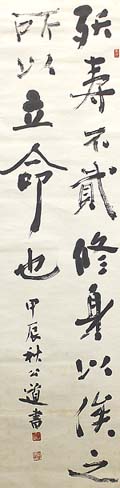 殀壽不貳修身以俟之
所以立命也
甲辰秋公道書